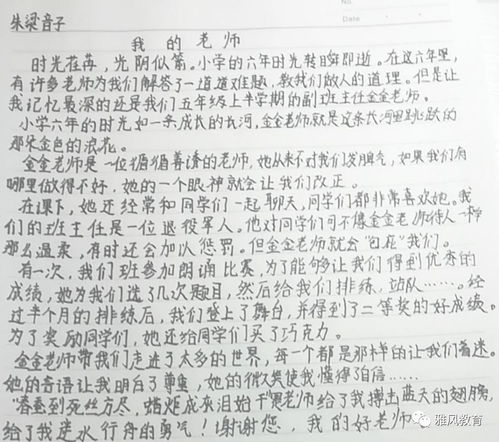 No.
Date
朱梁音子
我的老师
时光荏苒，光阴似箭。小学的六年时光转瞬即逝。在这六年里，
有许多老师为我们解答了一道道难题，教我们做人的道理。但是让
我记忆最深的还是我们五年级上半学期的副班主任金金老师。
小学六年的时光如一条成长的长河，金金老师就是这条长河里跳跃的
那朵金色的浪花。
金金老师是一位循循善诱的老师，她从来不对我们发脾气，如果我们有
哪里做得不好，她的一个眼神就会让我们改正。
在课下，她还经常和同学们一起聊天，同学们都非常喜欢她。我
们的班主任是一位退役军人。他对同学们可不像金金老师待人一样
那么温柔，有时还会加以惩罚。但金金老师就会"包庇"我们。
有一次，我们班参加朗诵比赛，为了能够让我们得到优秀的
成绩，她为我们选了几次题目，然后给我们排练，站队……。经
过半个月的排练后，我们登上了舞台，并得到了二等奖的好成绩。
为了奖励同学们，她还给同学们买了巧克力。
金金老师带我们走进了太多的世界，每一个都是那样的让我们着迷。
她的言语让我明白了尊重，她的微笑使我懂得自信……
"春蚕到死丝方尽，蜡炬成灰泪始干"老师给了我搏击蓝天的翅膀，
给了我逆水行舟的勇气！谢谢您，我的好老师
雅风教育